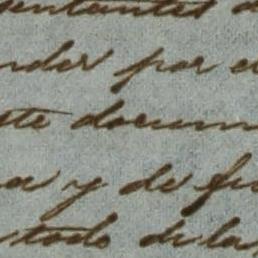 sentantes d
nder por e
ste docum
a y de fu
todo de la